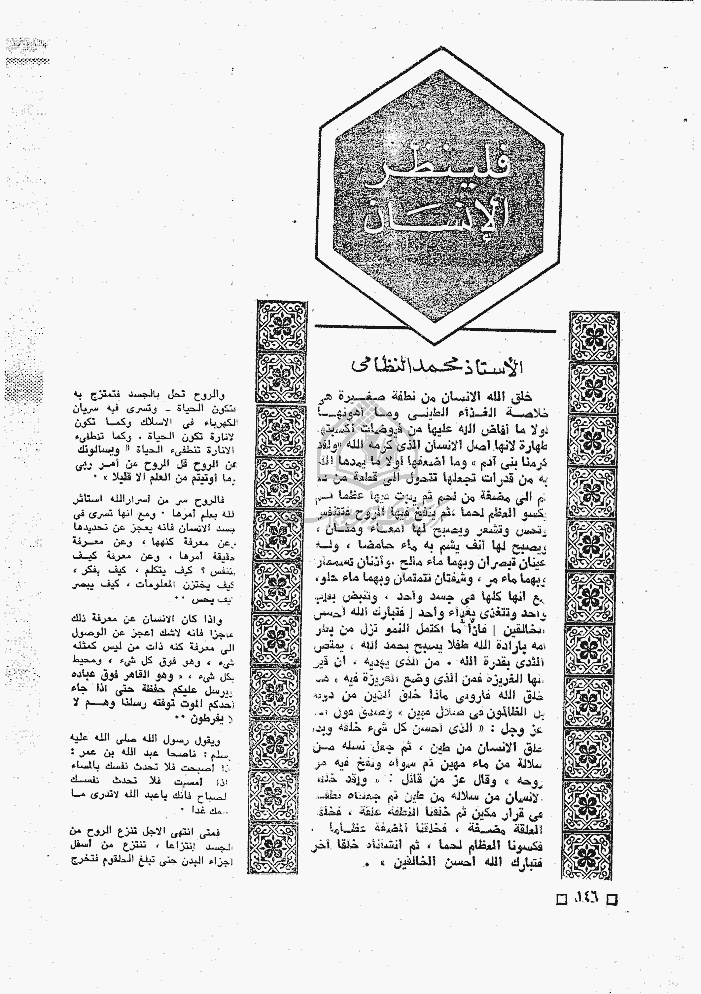 فلينظر
الإنسان
الأستاذ محمد النظامى
خلق الله الانسان من نطفة صغيرة هى
خلاصة الغذاء الطينى وما أهونها
لولا ما أفاض الله عليها من فيوضات أكسبتها
طهارة لانها أصل الانسان الذى كرمه الله « ولقد
كرمنا بنى آدم » وما أضعفها لولا ما يمدها الله
به من قدرات تجعلها تتحول الى قطعة من
ثم الى مضغة من لحم ثم عظما ثم
يكسو العظم لحما ثم ينفخ فيها الروح فتتنفس
وتحس وتشعر ويصبح لها أمعاء ومثان ،
ويصبح لها أنف يشم به ماء حامضا ، وله
عينان تبصران وبهما ماء مالح وأذنان تسمعان
وبهما ماء مر ، وشفتان تتمتمان وبهما ماء حلو ،
مع انها كلها فى جسد واحد ، وتنبض بقلب
واحد وتتغذى بغذاء واحد ! فتبارك الله أحسن
الخالقين ! فاذا ما اكتمل النمو نزل من بطن
أمه بارادة الله طفلا يسبح بحمد الله ، يمتص
الثدى بقدرة الله . من الذى يهديه . ان قيل
انها الغريزة فمن الذى وضع الغريزة فيه ، هذا
خلق الله فأرونى ماذا خلق الذين من دونه
بل الظالمون فى ضلال مبين » وصدق قول الله
عز وجل : « الذى أحسن كل شىء خلقه وبدأ
خلق الانسان من طين ، ثم جعل نسله من
سلالة من ماء مهين ثم سواه ونفخ فيه من
روحه » وقال عز من قائل : « ولقد خلقنا
الانسان من سلالة من طين ثم جعلناه نطفة
فى قرار مكين ثم خلقنا النطفة علقة ، فخلقنا
العلقة مضغة ، فخلقنا المضغة عظاما ،
فكسونا العظام لحما ، ثم أنشأناه خلقا آخر
فتبارك الله أحسن الخالقين » .
والروح تحل بالجسد فتمتزج به
فتكون الحياة - وتسرى فيه سريان
الكهرباء فى الاسلاك وكما تكون
الانارة تكون الحياة ، وكما تنطفىء
الانارة تنطفىء الحياة « ويسألونك
عن الروح قل الروح من أمر ربى
وما أوتيتم من العلم الا قليلا » .
فالروح سر من أسرار الله استأثر
الله بعلم أمرها . ومع انها تسرى فى
جسد الانسان فانه يعجز عن تحديدها
وعن معرفة كنهها ، وعن معرفة
حقيقة أمرها ، وعن معرفة كيف
يتنفس ؟ كيف يتكلم ، كيف يفكر ،
كيف يختزن المعلومات ، كيف يبصر
كيف يحس ..
واذا كان الانسان عن معرفة ذلك
عاجزا فانه لاشك أعجز عن الوصول
الى معرفة كنه ذات من ليس كمثله
شىء ، وهو فوق كل شىء ، ومحيط
بكل شىء ، « وهو القاهر فوق عباده
ويرسل عليكم حفظة حتى اذا جاء
أحدكم الموت توفته رسلنا وهم لا
يفرطون ..
ويقول رسول الله صلى الله عليه
وسلم : ناصحا عبد الله بن عمر :
اذا أصبحت فلا تحدث نفسك بالمساء
اذا أمسيت فلا تحدث نفسك
بالصباح فانك ياعبد الله لاتدرى ما
اسمك غدا .
فمتى انتهى الاجل تنزع الروح من
الجسد انتزاعا ، تنتزع من أسفل
أجزاء البدن حتى تبلغ الحلقوم فتخرج
١٤٦